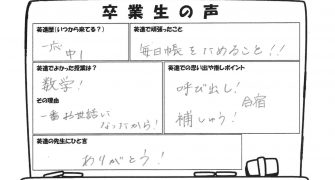 卒業生の声
英進歴(いつから来てる?)
一応
中1
英進で頑張ったこと
毎日帳をためること!!
英進でよかった授業は?
数学!
その理由
一番お世話に
なってたから!
英進での思い出や推しポイント
呼び出し!
合宿
補しゅう!
英進の先生にひと言
ありがとう!